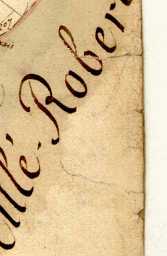 llé-Rober